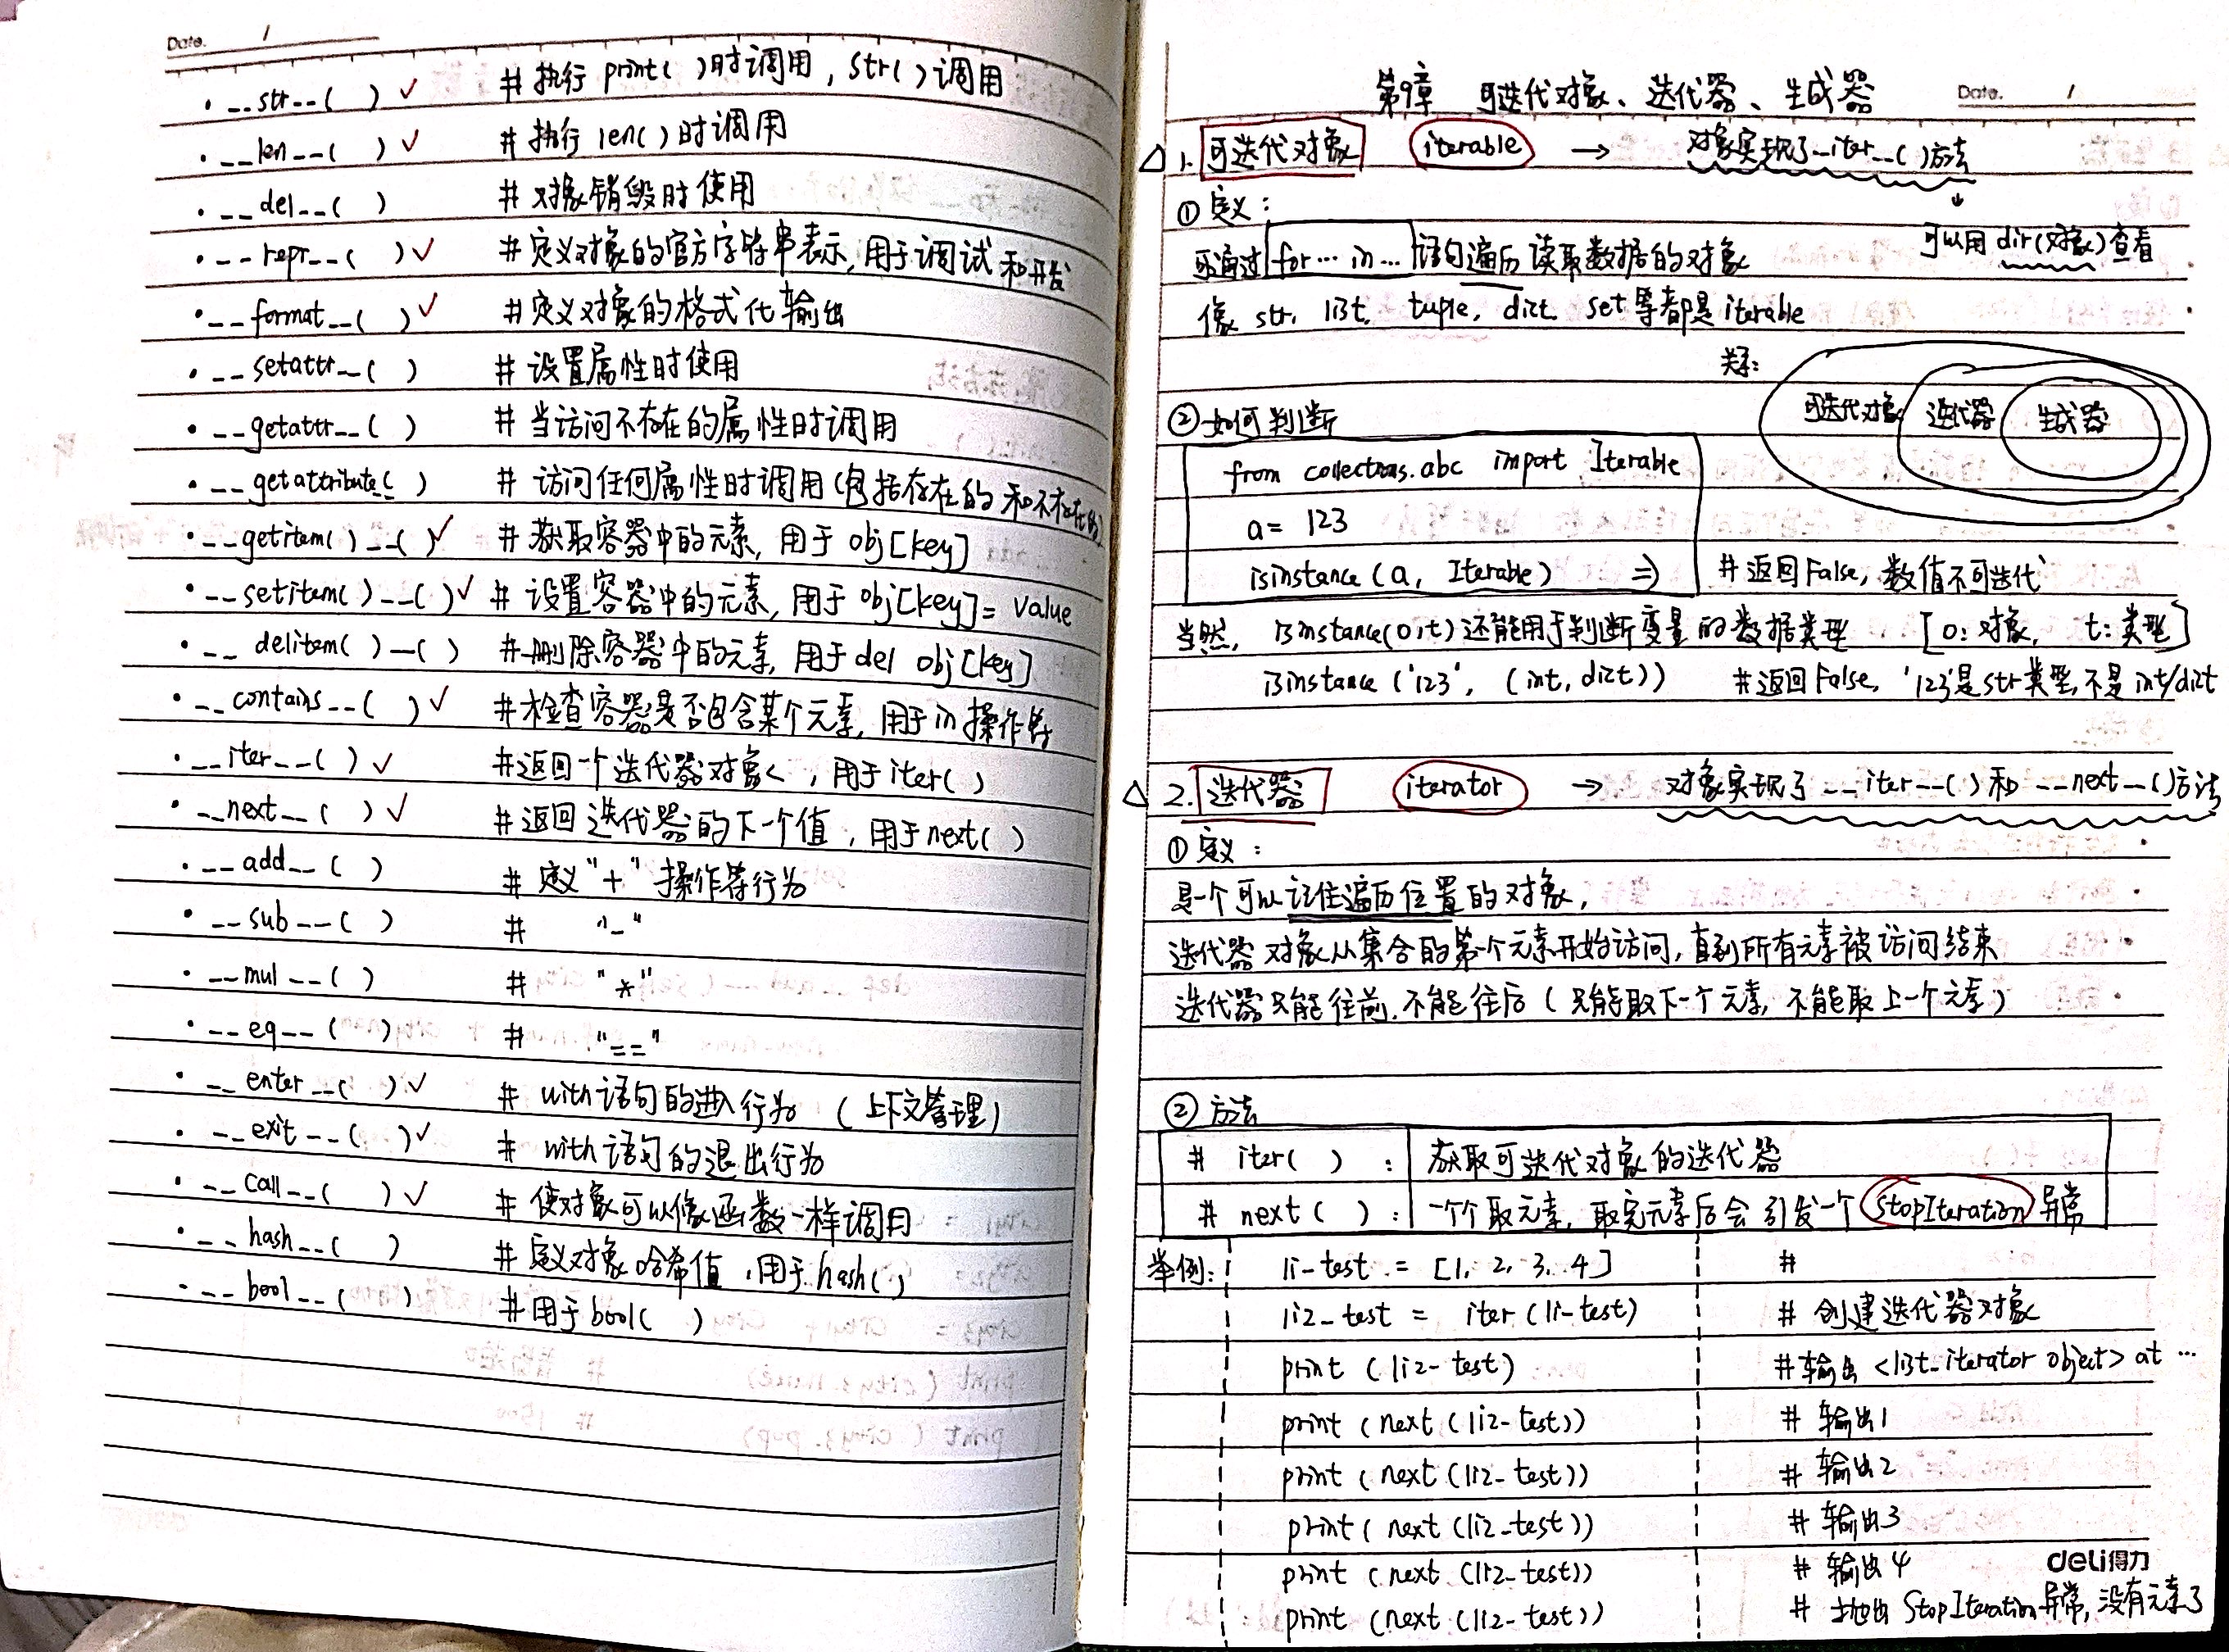 Date. /
· __str__( ) ✓ # 执行 print( )时调用, str( )调用
· __len__( ) ✓ # 执行 len( )时调用
· __del__( ) # 对象销毁时使用
· __repr__( ) ✓ # 定义对象的官方字符串表示, 用于调试和开发
· __format__( ) ✓ # 定义对象的格式化输出
· __setattr__( ) # 设置属性时使用
· __getattr__( ) # 当访问不存在的属性时调用
· __getattribute( ) # 访问任何属性时调用(包括存在的和不存在的)
· __getitem( )__( ) ✓ # 获取容器中的元素, 用于 obj[key]
· __setitem( )__( ) ✓ # 设置容器中的元素, 用于 obj[key]= value
· __delitem( )__( ) # 删除容器中的元素, 用于 del obj[key]
· __contains__( ) ✓ # 检查容器是否包含某个元素, 用于 in 操作符
· __iter__( ) ✓ # 返回一个迭代器对象, 用于 iter( )
· __next__( ) ✓ # 返回迭代器的下一个值, 用于 next( )
· __add__( ) # 定义"+"操作符行为
· __sub__( ) # "-"
· __mul__( ) # "*"
· __eq__( ) # "=="
· __enter__( ) ✓ # with语句的进入行为 (上下文管理)
· __exit__( ) ✓ # with语句的退出行为
· __call__( ) ✓ # 使对象可以像函数一样调用
· __hash__( ) # 定义对象哈希值, 用于 hash( )
· __bool__( ) # 用于 bool( )
第9章 可迭代对象、迭代器、生成器
Date. /
△ 1. 可迭代对象 iterable → 对象实现了__iter__( )方法
↓
可以用 dir(对象)查看
① 定义:
可通过 for… in… 语句遍历读取数据的对象
像 str, list, tuple, dict, set 等都是 iterable
关系:
可迭代对象 迭代器 生成器
② 如何判断
from collections.abc import Iterable
a = 123
isinstance (a, Iterable) => # 返回False, 数值不可迭代
当然, isinstance(o,t)还能用于判断变量的数据类型 [o: 对象, t: 类型]
isinstance ('123', (int, dict)) # 返回False, '123'是str类型, 不是int/dict
△ 2. 迭代器 iterator → 对象实现了 __iter__( ) 和 __next__( )方法
① 定义:
是一个可以记住遍历位置的对象,
迭代器对象从集合的第一个元素开始访问, 直到所有元素被访问结束
迭代器只能往前, 不能往后 (只能取下一个元素, 不能取上一个元素)
② 方法
# iter( ) : 获取可迭代对象的迭代器
# next( ) : 一个个取元素, 取完元素后会引发一个 StopIteration 异常
举例: li-test = [1, 2, 3, 4] #
li2_test = iter (li-test) # 创建迭代器对象
print (li2-test) # 输出 <list_iterator object> at …
print (next (li2-test)) # 输出1
print (next (li2-test)) # 输出2
print (next (li2_test)) # 输出3
print (next (li2_test)) # 输出4
print (next (li2-test)) # 抛出 StopIteration 异常, 没有元素了
deli得力